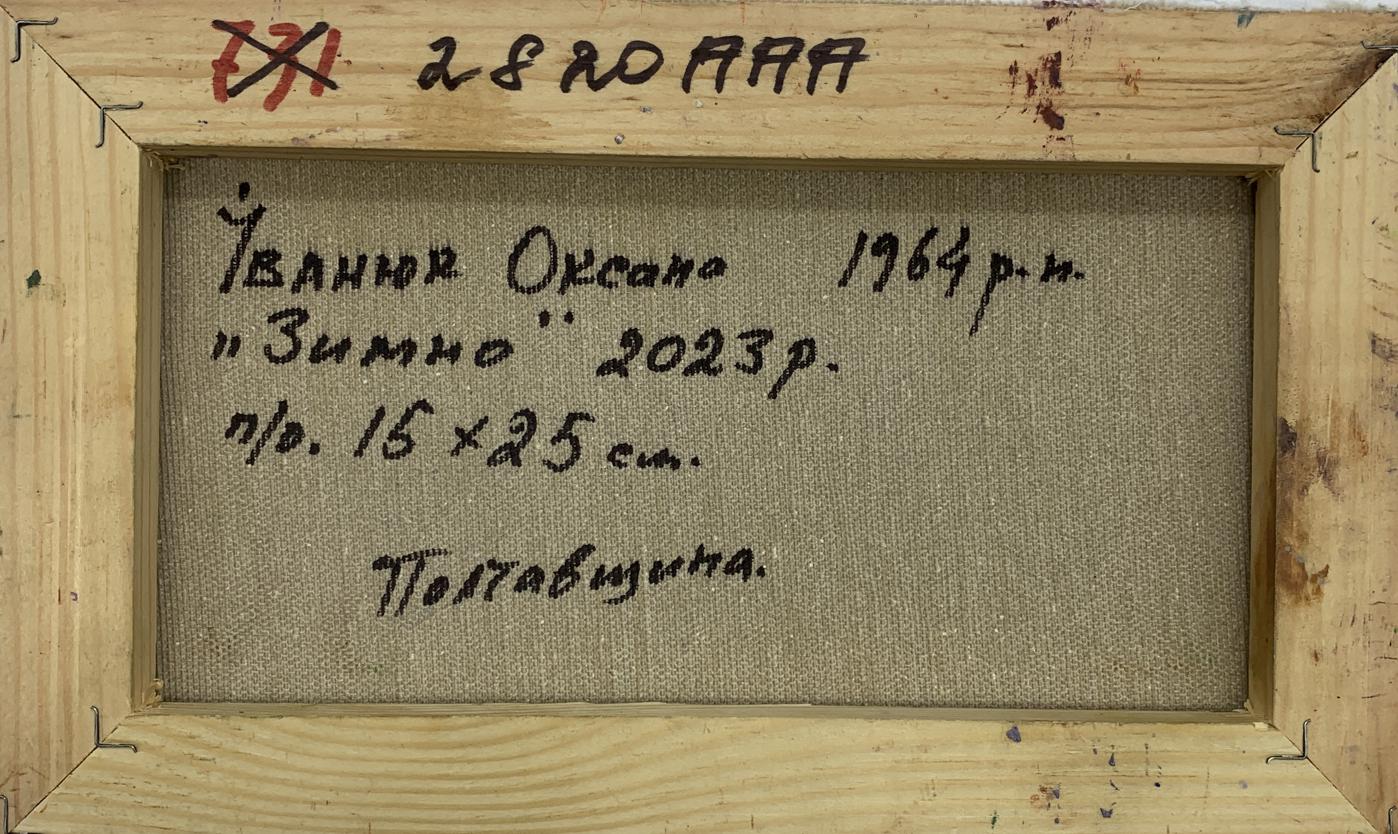 731 2820AAA
Іванюк Оксана 1964 р.н.
„Зимно" 2023р.
п/о. 15 × 25 см.
Полтавщина.